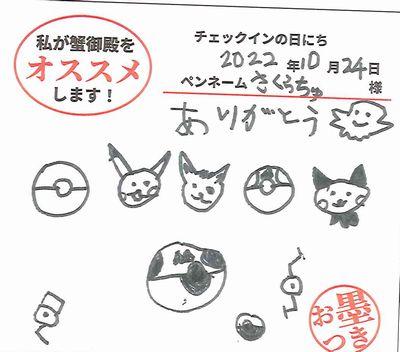 私が蟹御殿を
オススメ
します！
チェックインの日にち
2022年10月24日
ペンネーム さくらちゅ 様
ありがとう
お墨つき